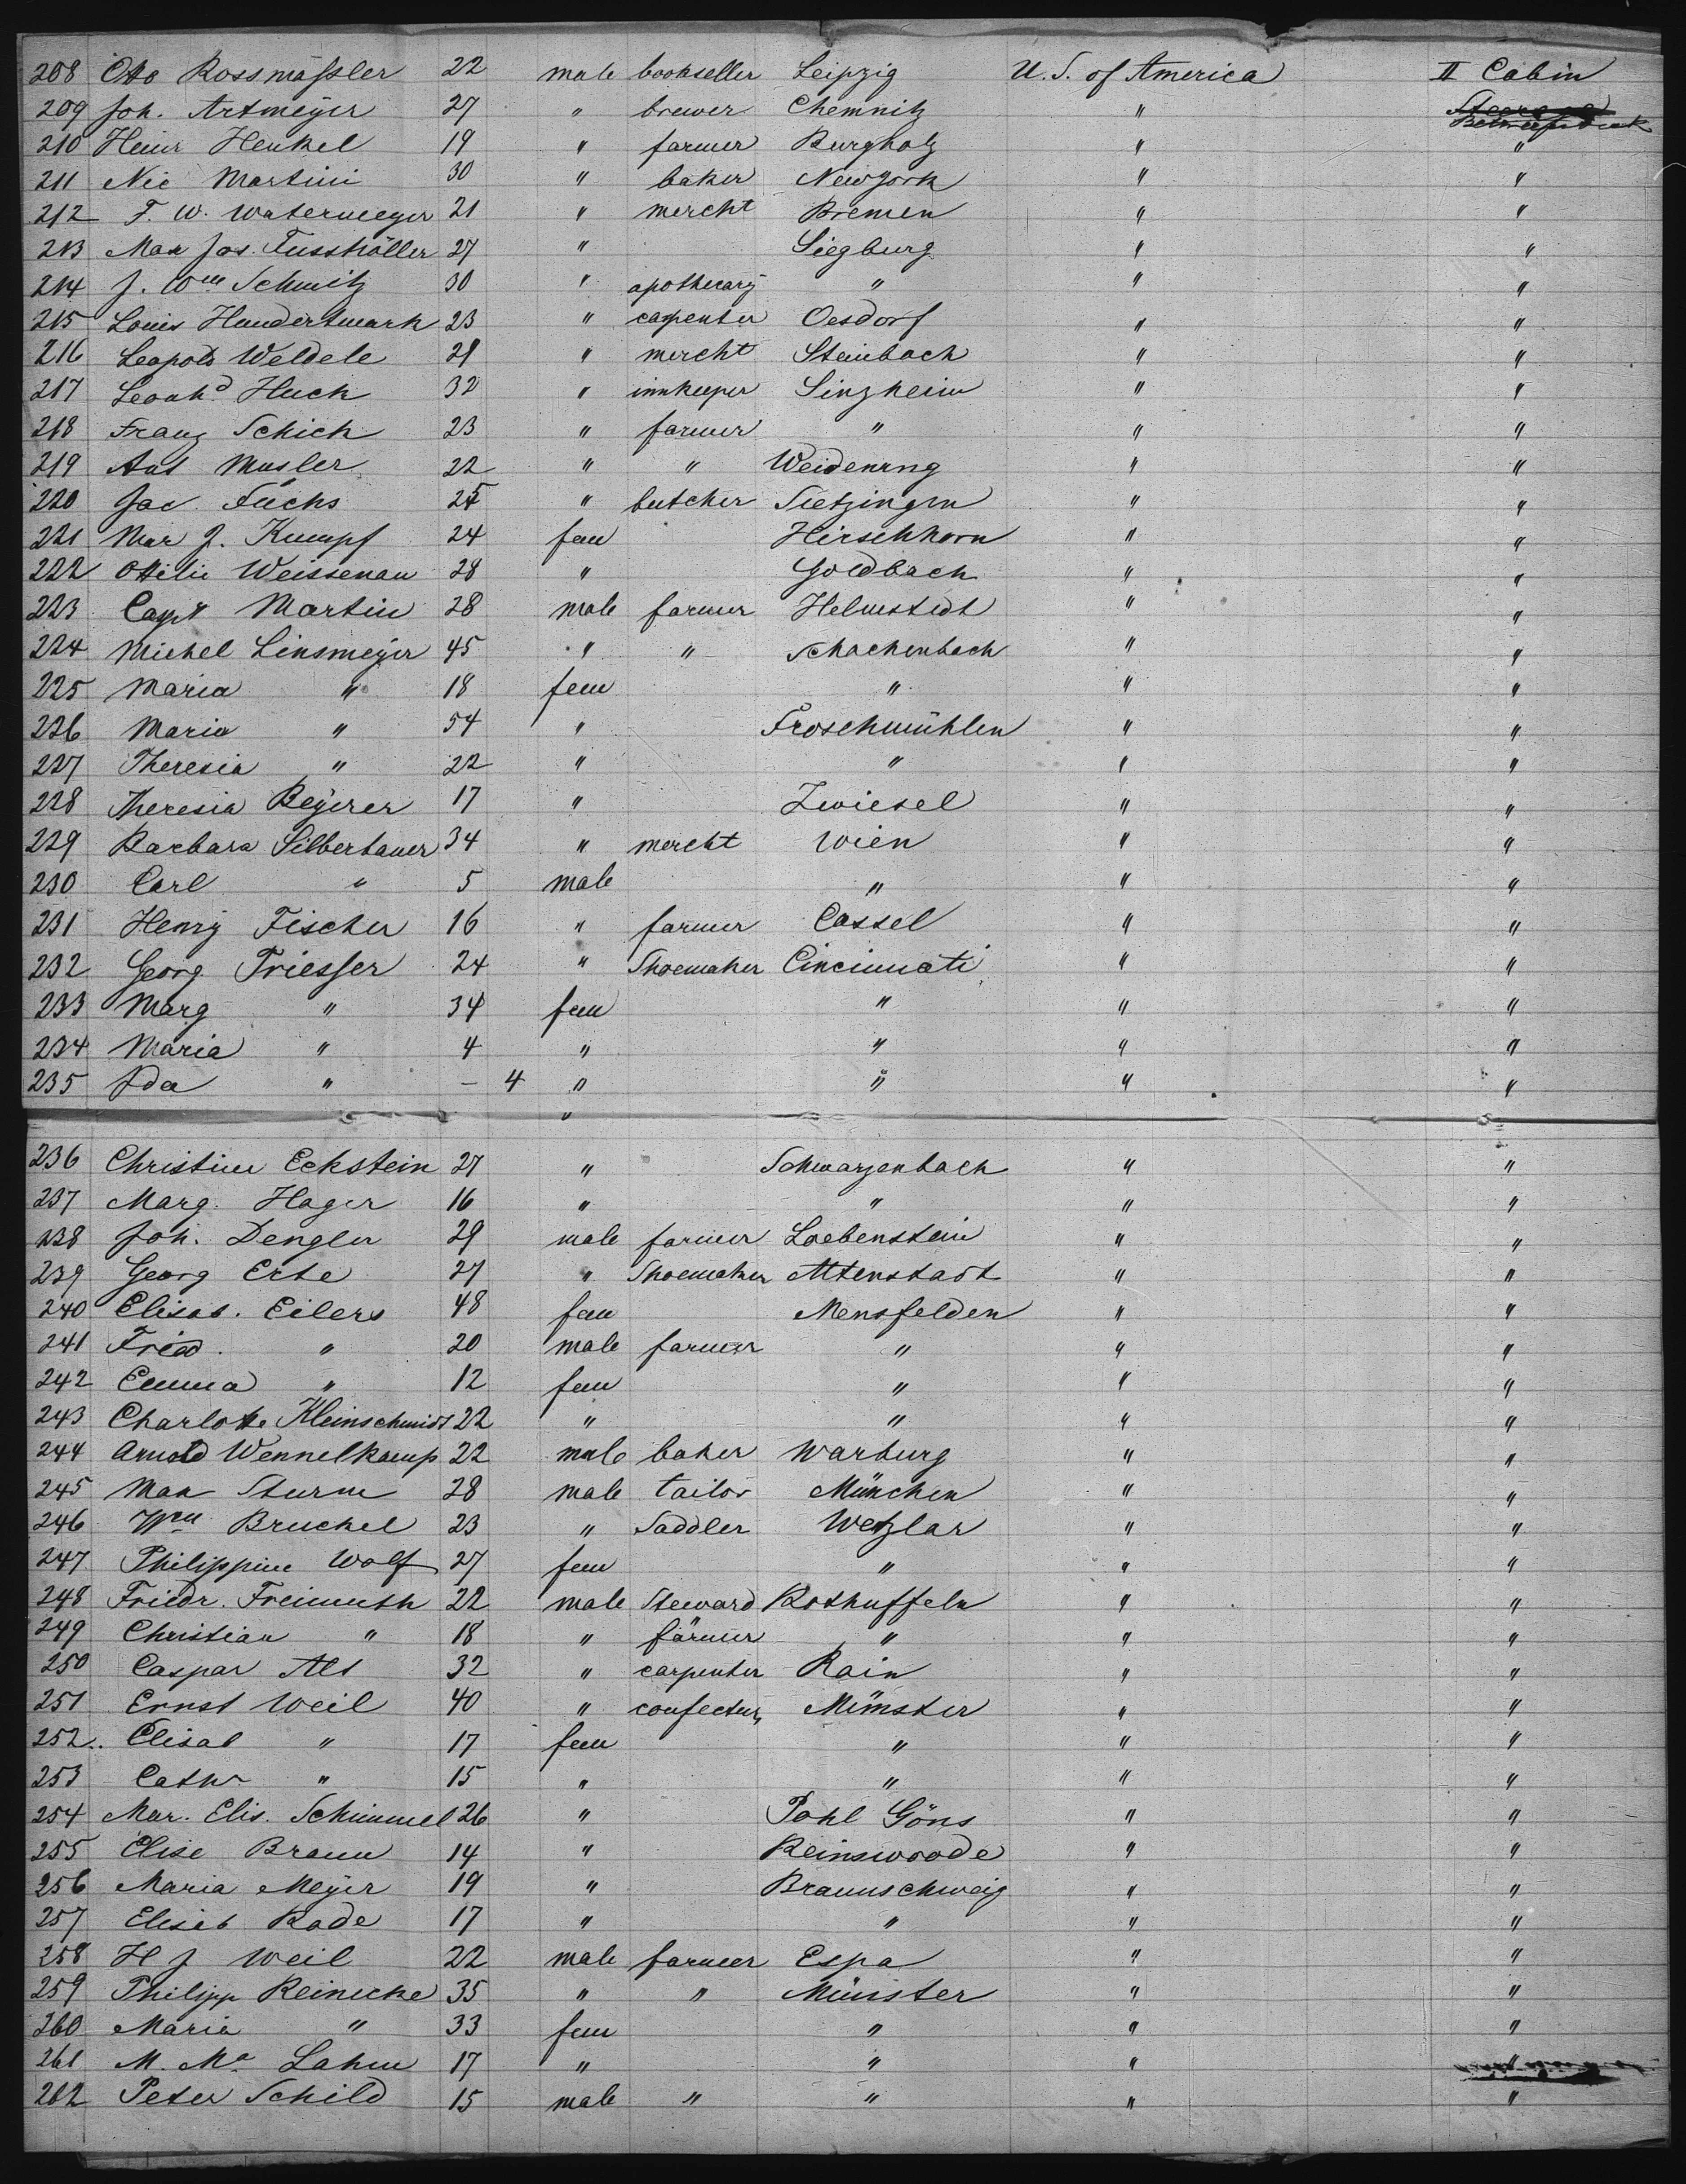 208 Otto Rossmässler 22 male bookseller Leipzig U. S. of America II Cabin
209 Joh. Artmeyer 27 " brewer Chemnitz " Steerage Betweendeck
210 Heinr Henkel 19 " farmer Burgholz " "
211 Nic Martini 30 " baker Newyork " "
212 F. W. Watermeyer 21 " mercht Bremen " "
213 Max Jos. Fusshöller 27 " Siegburg " "
214 J. Wm Schmitz 30 " apothecary " " "
215 Louis Hundertmark 23 " carpenter Oesdorf " "
216 Leopold Weldele 29 " mercht Steinbach " "
217 Leonhd Huck 32 " innkeeper Sinzheim " "
218 Franz Schick 23 " farmer " " "
219 Ant Musler 22 " " Weidenrng " "
220 Jac. Füchs 25 " butcher Sietzingen " "
221 Mar J. Kumpf 24 fem Hirschhorn " "
222 Ottilie Weissenau 28 " Goldbach " "
223 Capt Martin 28 male farmer Helmstedt " "
224 Michel Linsmeyer 45 " " Schachenbach " "
225 Maria " 18 fem " " "
226 Maria " 54 " Froschmühlen " "
227 Theresia " 22 " " " "
228 Theresia Beyerer 17 " Zwiesel " "
229 Barbara Silberbauer 34 " mercht Wien " "
230 Carl " 5 male " " "
231 Henry Fischer 16 " farmer Cassel " "
232 Georg Triesser 24 " Shoemaker Cincinnati " "
233 Marg " 34 fem " " "
234 Maria " 4 " " " "
235 Ida " – 4 " " " "
"
236 Christine Eckstein 27 " Schwarzenbach " "
237 Marg. Hager 16 " " " "
238 Joh. Dengler 29 male farmer Loebenstein " "
239 Georg Erbe 27 " Shoemaker Altenstadt " "
240 Elisab. Eilers 48 fem Mensfelden " "
241 Fried. " 20 male farmer " " "
242 Emma " 12 fem " " "
243 Charlotte Kleinschmidt 22 " " " "
244 Arnold Wennelkamp 22 male baker Warburg " "
245 Max Sturm 28 male tailor München " "
246 Wm Bruckel 23 " Saddler Wetzlar " "
247 Philippine Wolf 27 fem " " "
248 Friedr. Freimuth 22 male Steward Rothuffeln " "
249 Christian " 18 " farmer " " "
250 Caspar Alt 32 " carpenter Rain " "
251 Ernst Weil 40 " confectur Münster " "
252. Elisab " 17 fem " " "
253 Cathr " 15 " " " "
254 Mar. Elis. Schimmel 26 " Pohl Göns " "
255 Elise Braun 14 " Reinswoode " "
256 Maria Meyer 19 " Braunschweig " "
257 Elisab Rode 17 " " " "
258 H J Weil 22 male farmer Espa " "
259 Philipp Reinecke 35 " " Münster " "
260 Maria " 33 fem " " "
261 M. Ma Lahm 17 " " " "
262 Peter Schild 15 male " " " "